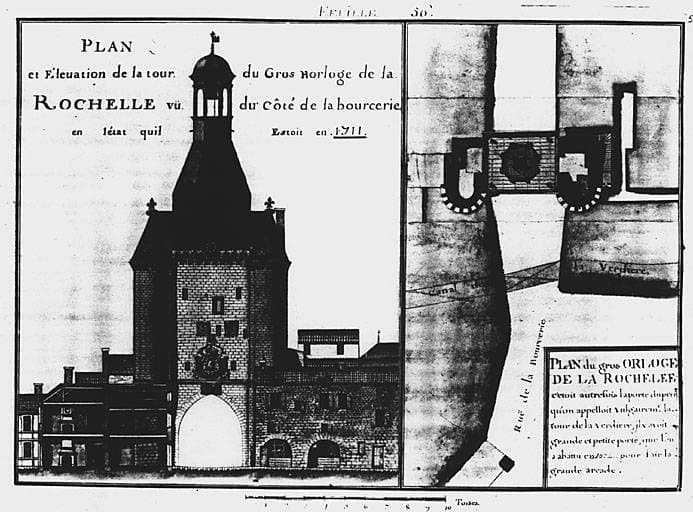 FEUILLE 50.
PLAN
et Eleuation de la tour du Gros Horloge de la
ROCHELLE vü du Côté de la bourcerie
en létat quil Estoit en 1711.
Canal de la Verdiere
Ruë de la Bouverie
PLAN du gros ORLOGE
DE LA ROCHELEE
cétoit autrefois la porte du perot
qu'on appelloit vulgairemt. la
tour de la verdiere, il y avoit
grande et petite porte, que l'on
a abattu en pour faire la
grande arcade.
1 2 3 4 5 6 7 8 9 10 Toises